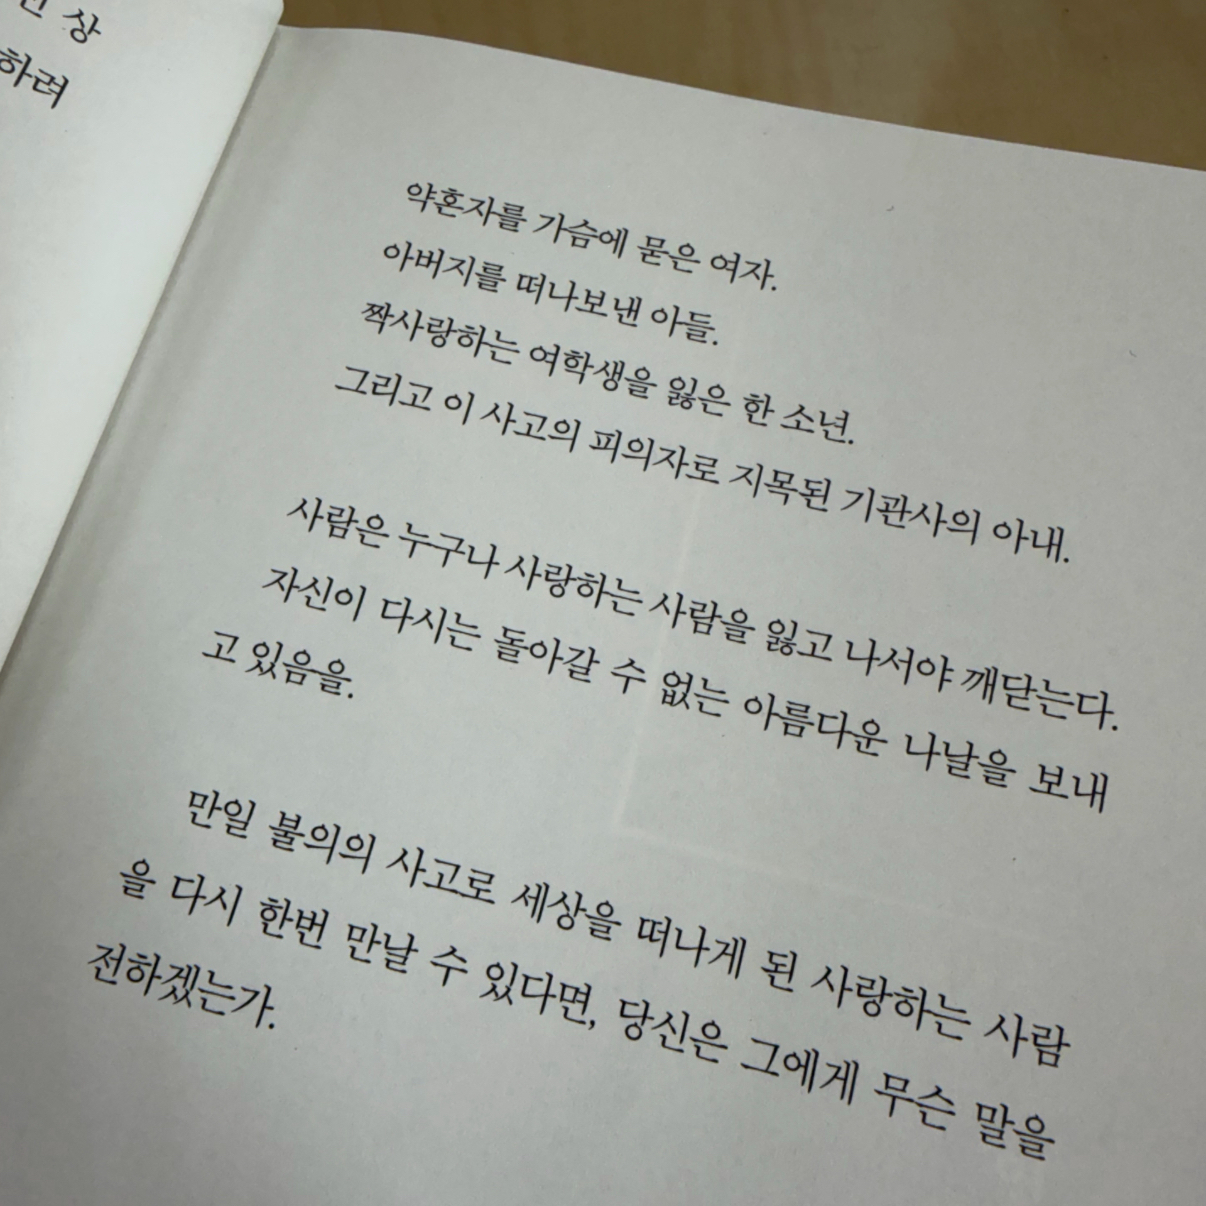 상
하려
약혼자를 가슴에 묻은 여자.
아버지를 떠나보낸 아들.
짝사랑하는 여학생을 잃은 한 소년.
그리고 이 사고의 피의자로 지목된 기관사의 아내.
사람은 누구나 사랑하는 사람을 잃고 나서야 깨닫는다.
자신이 다시는 돌아갈 수 없는 아름다운 나날을 보내
고 있음을.
만일 불의의 사고로 세상을 떠나게 된 사랑하는 사람
을 다시 한번 만날 수 있다면, 당신은 그에게 무슨 말을
전하겠는가.